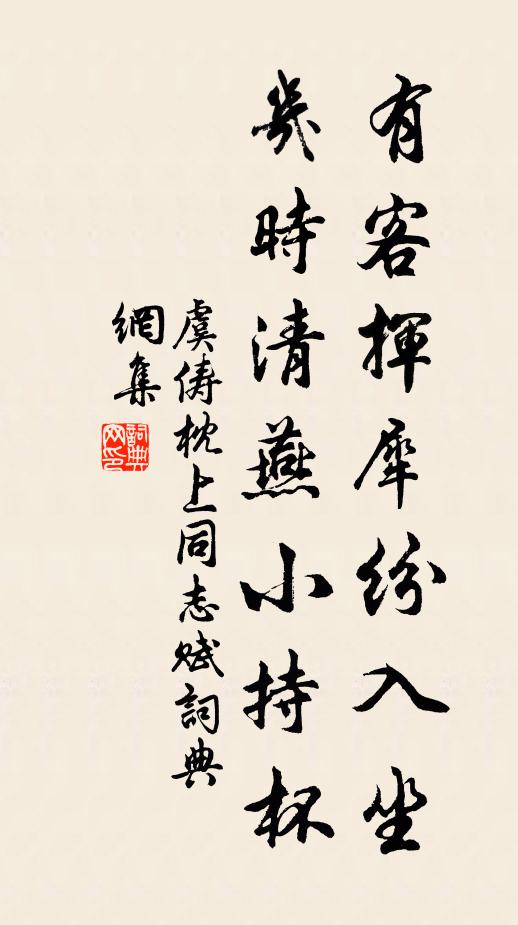 有客揮犀紛入坐
幾時清燕小持杯
虞儔枕上同志賦詞典
網集
詞典
网印